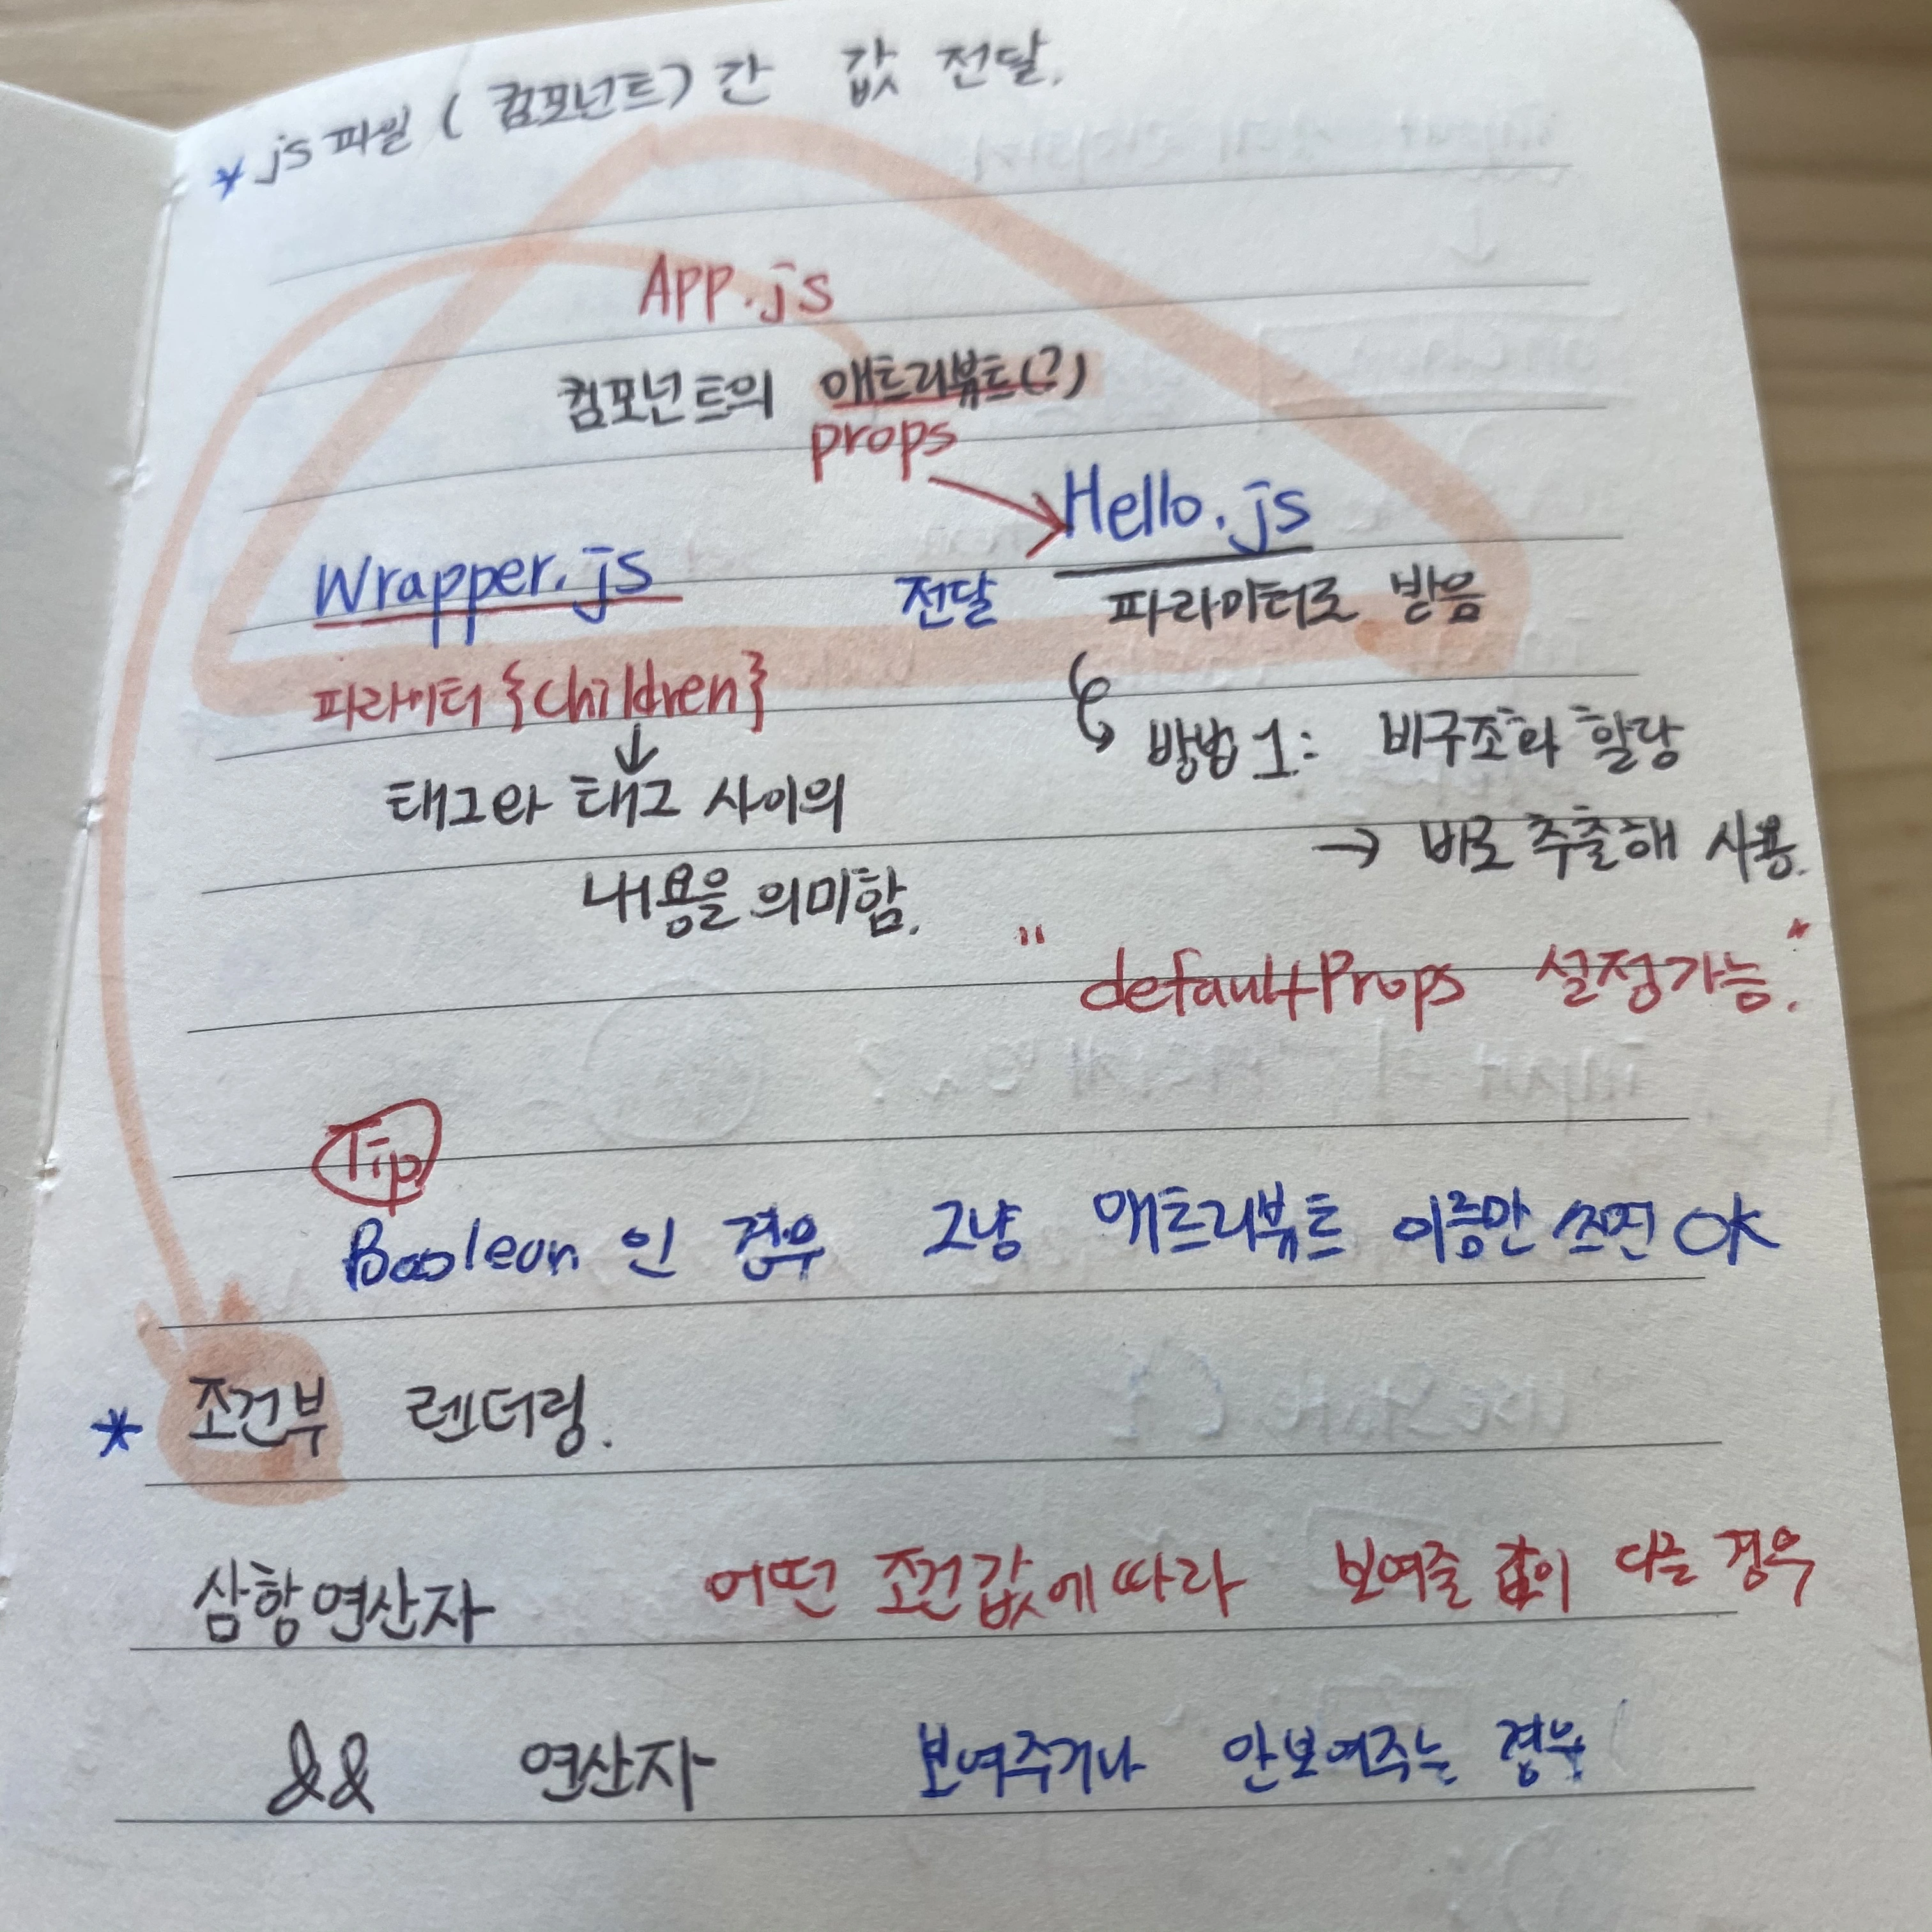 * js파일 (컴포넌트) 간 값 전달.
App.js
컴포넌트의 애트리뷰트(?)
props
Hello.js
Wrapper.js
전달 파라미터로 받음
파라미터 {children}
방법 1: 비구조화 할당
↓
태그와 태그 사이의
→ 바로 추출해 사용.
내용을 의미함.
"defaultProps 설정가능."
Tip
Boolean 인 경우 그냥 애트리뷰트 이름만 쓰면 OK
* 조건부 렌더링.
삼항연산자 어떤 조건값에 따라 보여줄 값이 다를 경우
&& 연산자 보여주거나 안보여주는 경우